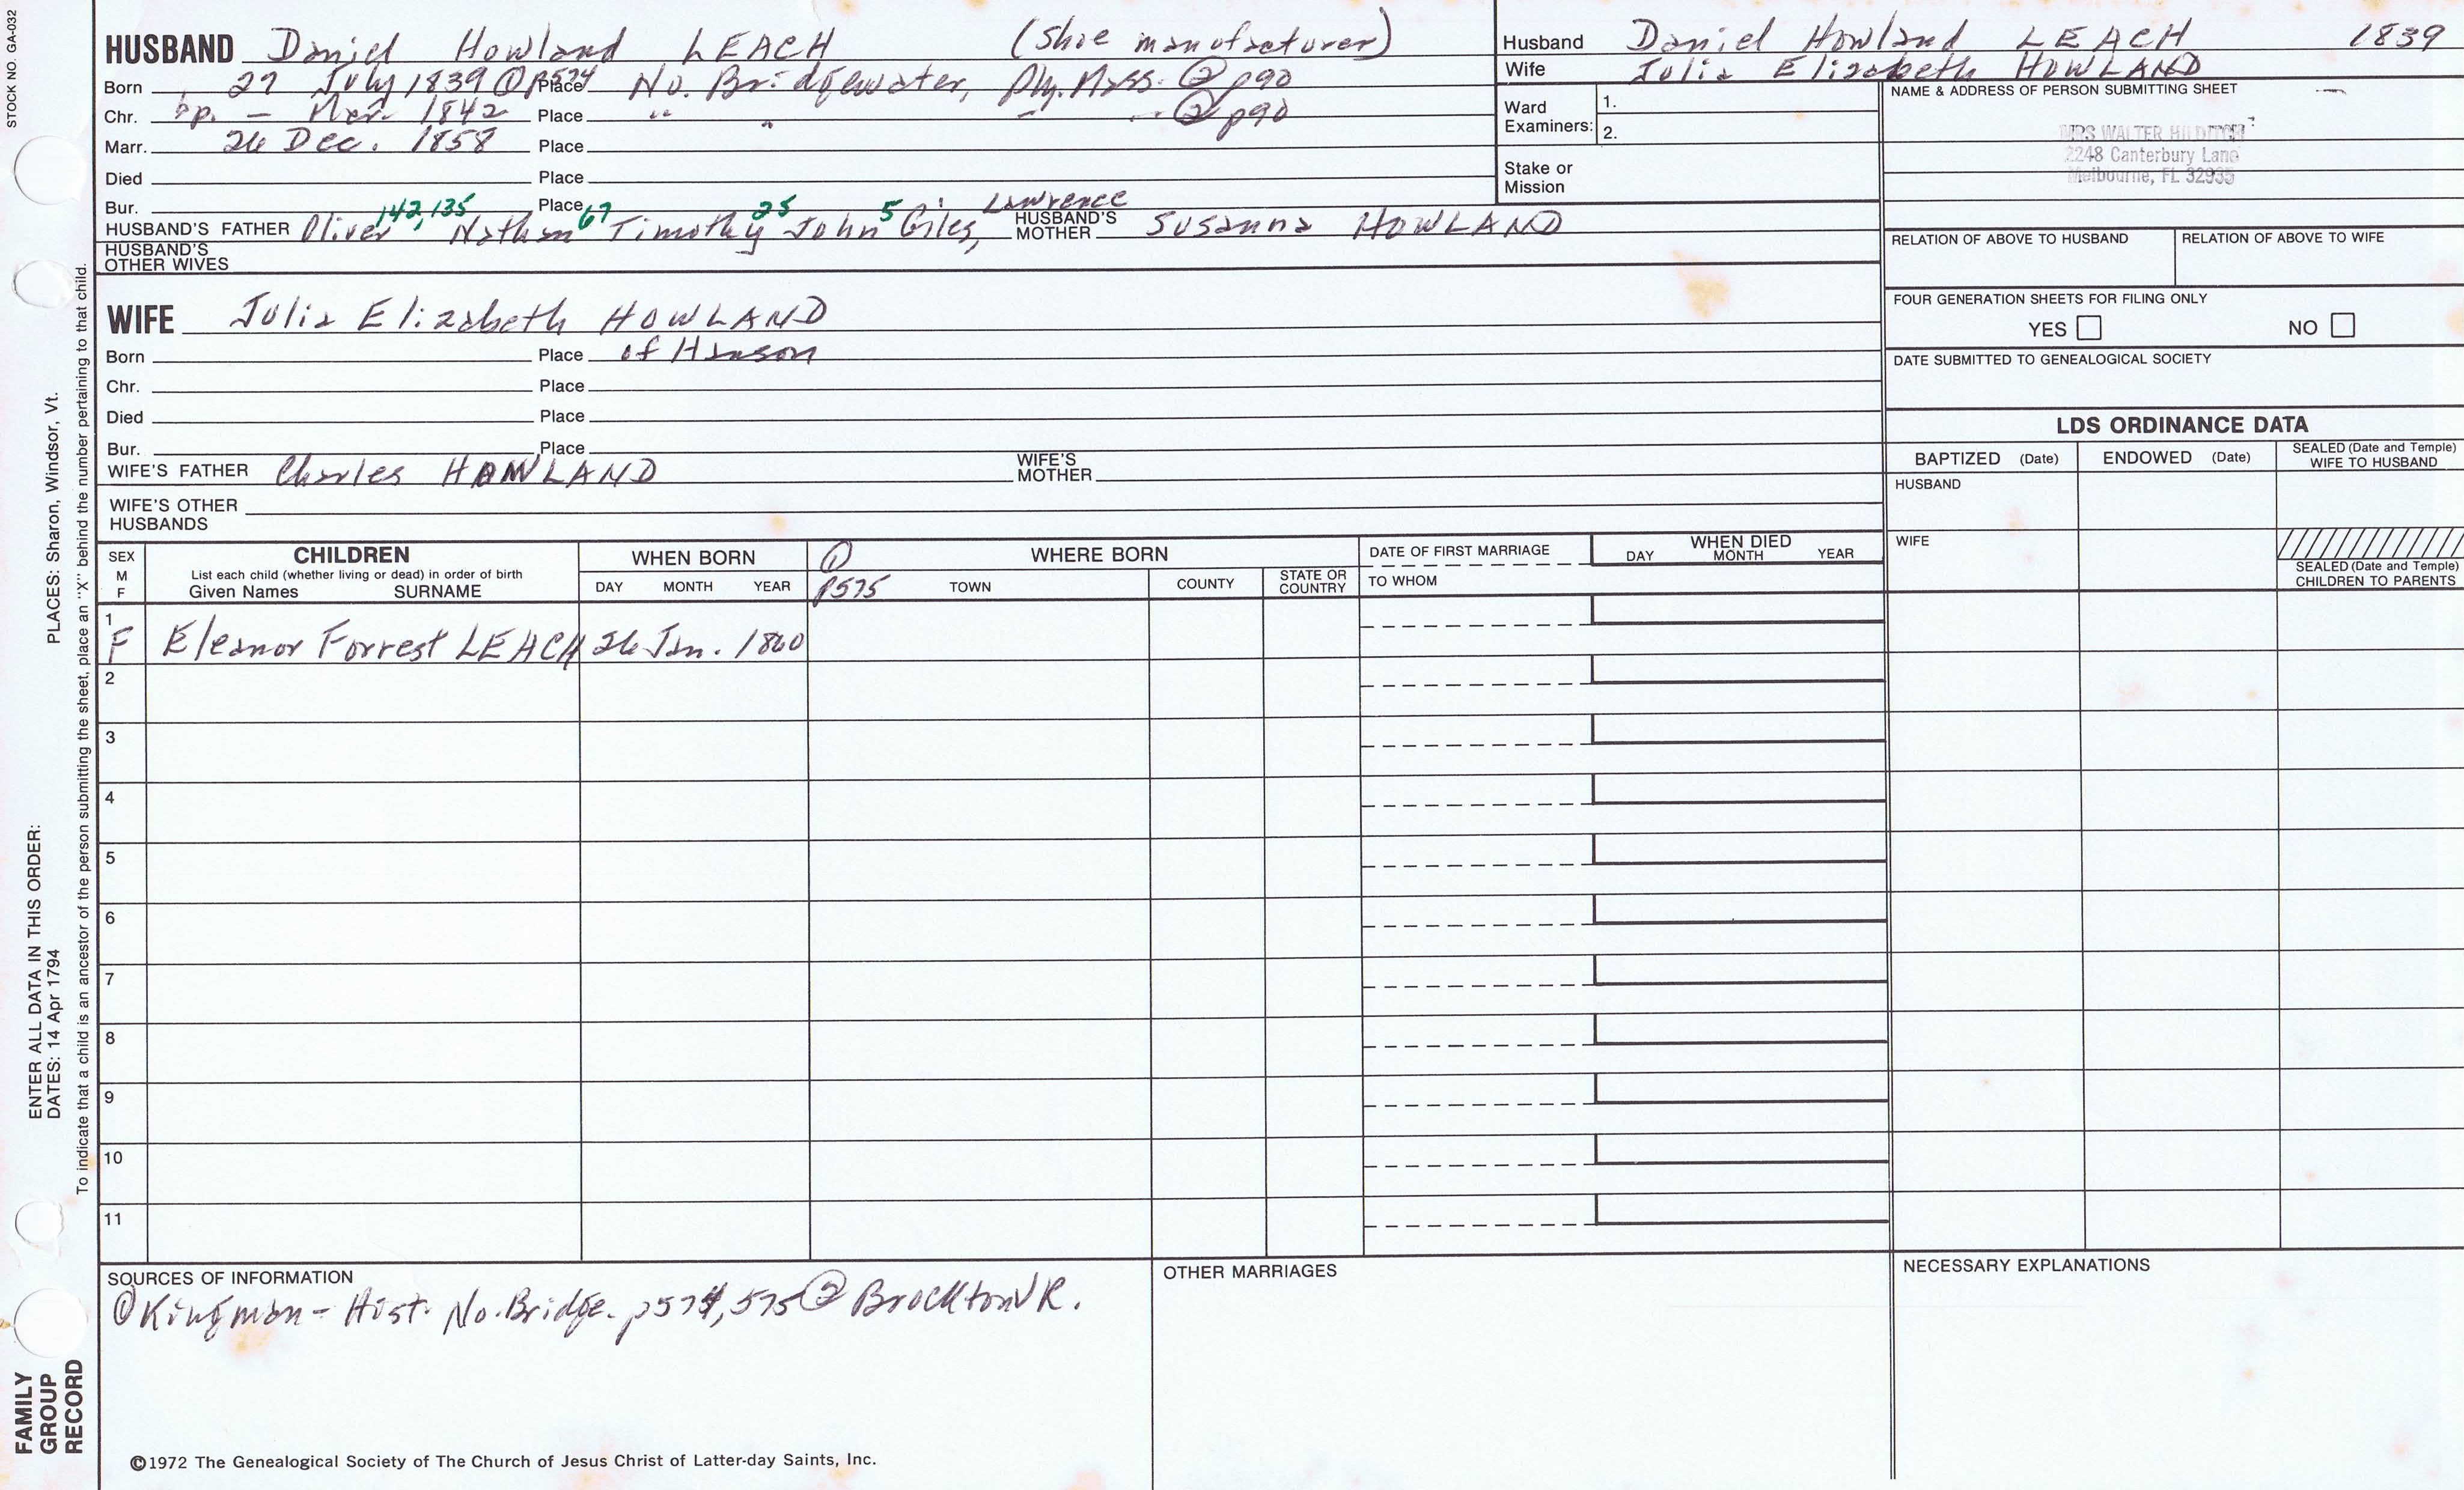 STOCK NO. GA-032
HUSBAND Daniel Howland LEACH (shoe manufacturer)
Born 27 July 1839 ① p574 Place No. Bridgewater, Ply. Mass. ② p90
Chr. bp. — Mar. 1842 Place " " — — ② p90
Marr. 26 Dec. 1858 Place
Died Place
Bur. Place
142, 135 67 25 5 Lawrence
HUSBAND'S FATHER Oliver, Nathan Timothy John Giles, HUSBAND'S MOTHER Susanna HOWLAND
HUSBAND'S OTHER WIVES
Husband Daniel Howland LEACH 1839
Wife Julia Elizabeth HOWLAND
Ward Examiners: 1.
2.
Stake or Mission
NAME & ADDRESS OF PERSON SUBMITTING SHEET
MRS WALTER HILDITCH
2248 Canterbury Lane
Melbourne, FL 32935
RELATION OF ABOVE TO HUSBAND RELATION OF ABOVE TO WIFE
FOUR GENERATION SHEETS FOR FILING ONLY
YES NO
DATE SUBMITTED TO GENEALOGICAL SOCIETY
WIFE Julia Elizabeth HOWLAND
Born Place of Hanson
Chr. Place
Died Place
Bur. Place
WIFE'S FATHER Charles HOWLAND WIFE'S MOTHER
WIFE'S OTHER HUSBANDS
LDS ORDINANCE DATA
BAPTIZED (Date) ENDOWED (Date) SEALED (Date and Temple) WIFE TO HUSBAND
HUSBAND
WIFE
SEALED (Date and Temple) CHILDREN TO PARENTS
SEX M F
CHILDREN
List each child (whether living or dead) in order of birth
Given Names SURNAME
WHEN BORN
DAY MONTH YEAR
① p575
WHERE BORN
TOWN COUNTY STATE OR COUNTRY
DATE OF FIRST MARRIAGE
TO WHOM
WHEN DIED
DAY MONTH YEAR
1 F Eleanor Forrest LEACH 26 Jan. 1860
2
3
4
5
6
7
8
9
10
11
SOURCES OF INFORMATION
① Kingman - Hist. No. Bridge. p574, 575 ② Brockton VR.
OTHER MARRIAGES
NECESSARY EXPLANATIONS
©1972 The Genealogical Society of The Church of Jesus Christ of Latter-day Saints, Inc.
PLACES: Sharon, Windsor, Vt.
ENTER ALL DATA IN THIS ORDER:
DATES: 14 Apr 1794
To indicate that a child is an ancestor of the person submitting the sheet, place an "X" behind the number pertaining to that child.
FAMILY
GROUP
RECORD